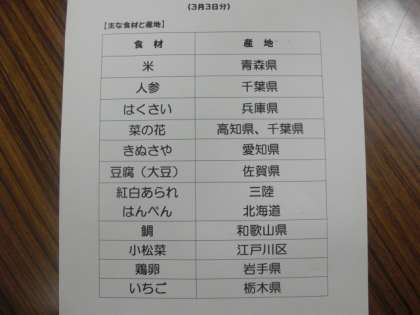 (3月3日分)
【主な食材と産地】
食材 産地
米 青森県
人参 千葉県
はくさい 兵庫県
菜の花 高知県、千葉県
きぬさや 愛知県
豆腐（大豆） 佐賀県
紅白あられ 三陸
はんぺん 北海道
鯛 和歌山県
小松菜 江戸川区
鶏卵 岩手県
いちご 栃木県